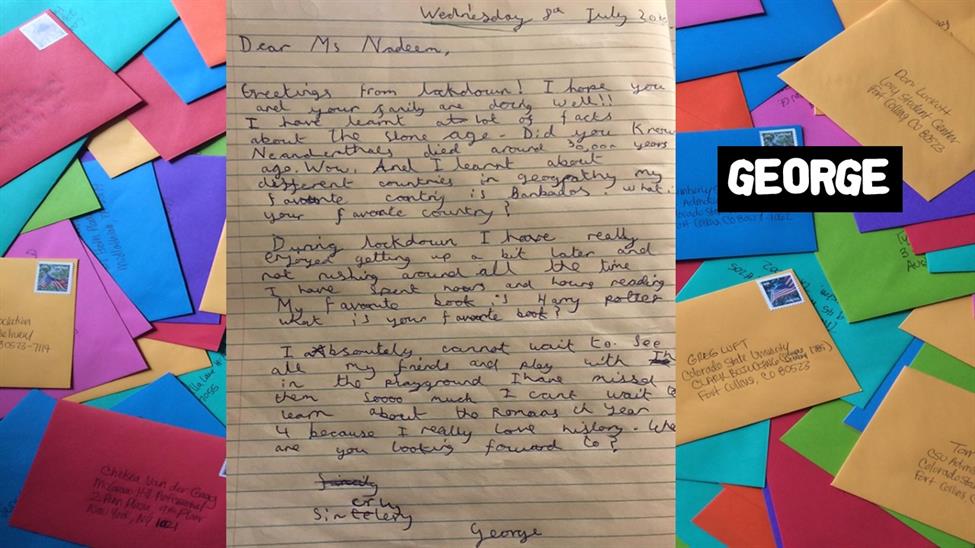 Wednesday 8th July 20
Dear Ms Nadeem,
Greetings from lockdown! I hope you
and your family are doing well!!
I have learnt a lot of facts
about the stone age. Did you know
Neanderthals died around 30,000 years
ago. Wow. And I learnt about
different countries in geogpathy my
favorite contry is Barbados. what i
your favorite country?
During lockdown I have really
enjoyed getting up a bit later and
not rushing around all the time
I have spent hours and hours reading
My favorite book is Harry potter
what is your favorite book?
I Absolutely cannot wait to see
all my friends and play with
in the playground I have missed
them soooo much I cant wait
learn about the Romans in Year
4 because I really love history.
are you looking forward to?
Sincerly
George
GEORGE
Don Luckett
Lory Student Center
Fort Collins CO 80523
GREG LUFT
Colorado State University
Fort Collins, CO 80523
Chelsea Van der Gaag
McGraw-Hill Professional
2 Penn Plaza, 9th Floor
New York, NY
80523-7114
Tom
CSU Admi
Colorado Stat
Fort Collins